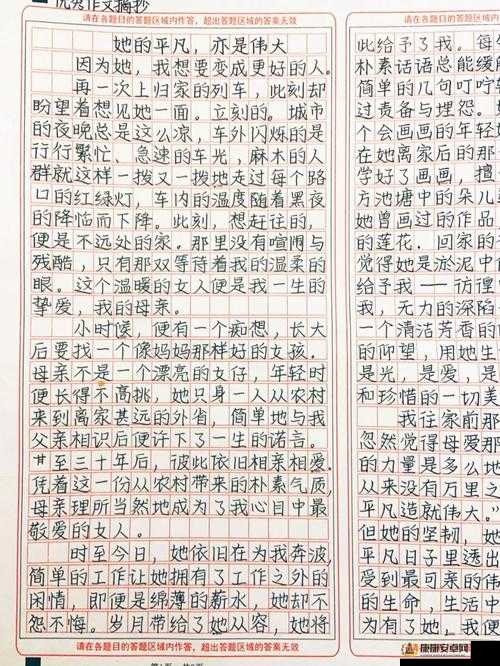 优秀作文摘抄
请在各题目的答题区域内作答，超出答题区域的答案无效
她的平凡，亦是伟大
因为她，我想要变成更好的人。
再一次上归家的列车，此刻却
盼望着想见她一面。立刻的。城市
的夜晚总是这么凉，车外闪烁的是
行行繁忙、急速的车光，麻木的人
群就这样一拨又一拨地走过每个路
口的红绿灯，车内的温度随着黑夜
的降临而下降。此刻，想赶往的，
便是不远处的家。那里没有喧闹与
残酷，只有那双等待着我的温柔的
眼。这个温暖的女人便是我一生的
挚爱，我的母亲。
小时候，便有一个痴想，长大
后要找一个像妈妈那样好的女孩。
母亲不是一个漂亮的女仔，年轻时
便长得不高挑，她只身一人从农村
来到离家甚远的外省，简单地与我
父亲相识后便许下了一生的诺言。
甘至三十年后，彼此依旧相亲相爱。
凭着这一份从农村带来的朴素气质，
母亲理所当然地成为了我心目中最
敬爱的女人。
时至今日，她依旧在为我奔波，
简单的工作让她拥有了工作之外的
闲情，即便是绵薄的薪水，她却不
怨不悔。岁月带给了她从容，她将
请在各题目的答题区域内作答，超出答题区域的答案无效
请在各题目的答
此给予了我。每
朴素话语总能缓解
简单的几句叮咛轻
过责备与埋怨。
个会画画的年轻
在她离家后的那
学好了画画，擅
方池塘中的朵儿
她曾画过的作品
的莲花．回家的
觉得她是淤泥中
给予我——彷徨
我，无力的深陷
一个清洁芳香的
的仰望，用她生
是光，是爱，是
和珍惜的一切美
我往家前那
忽然觉得母爱那
的力量是多么地
从来没有万里之
平凡造就伟大。"
但她的坚韧，她
平凡日子里透出
受到最可亲的伟
的生命，生活中
为有了她，我便
请在各题目的答